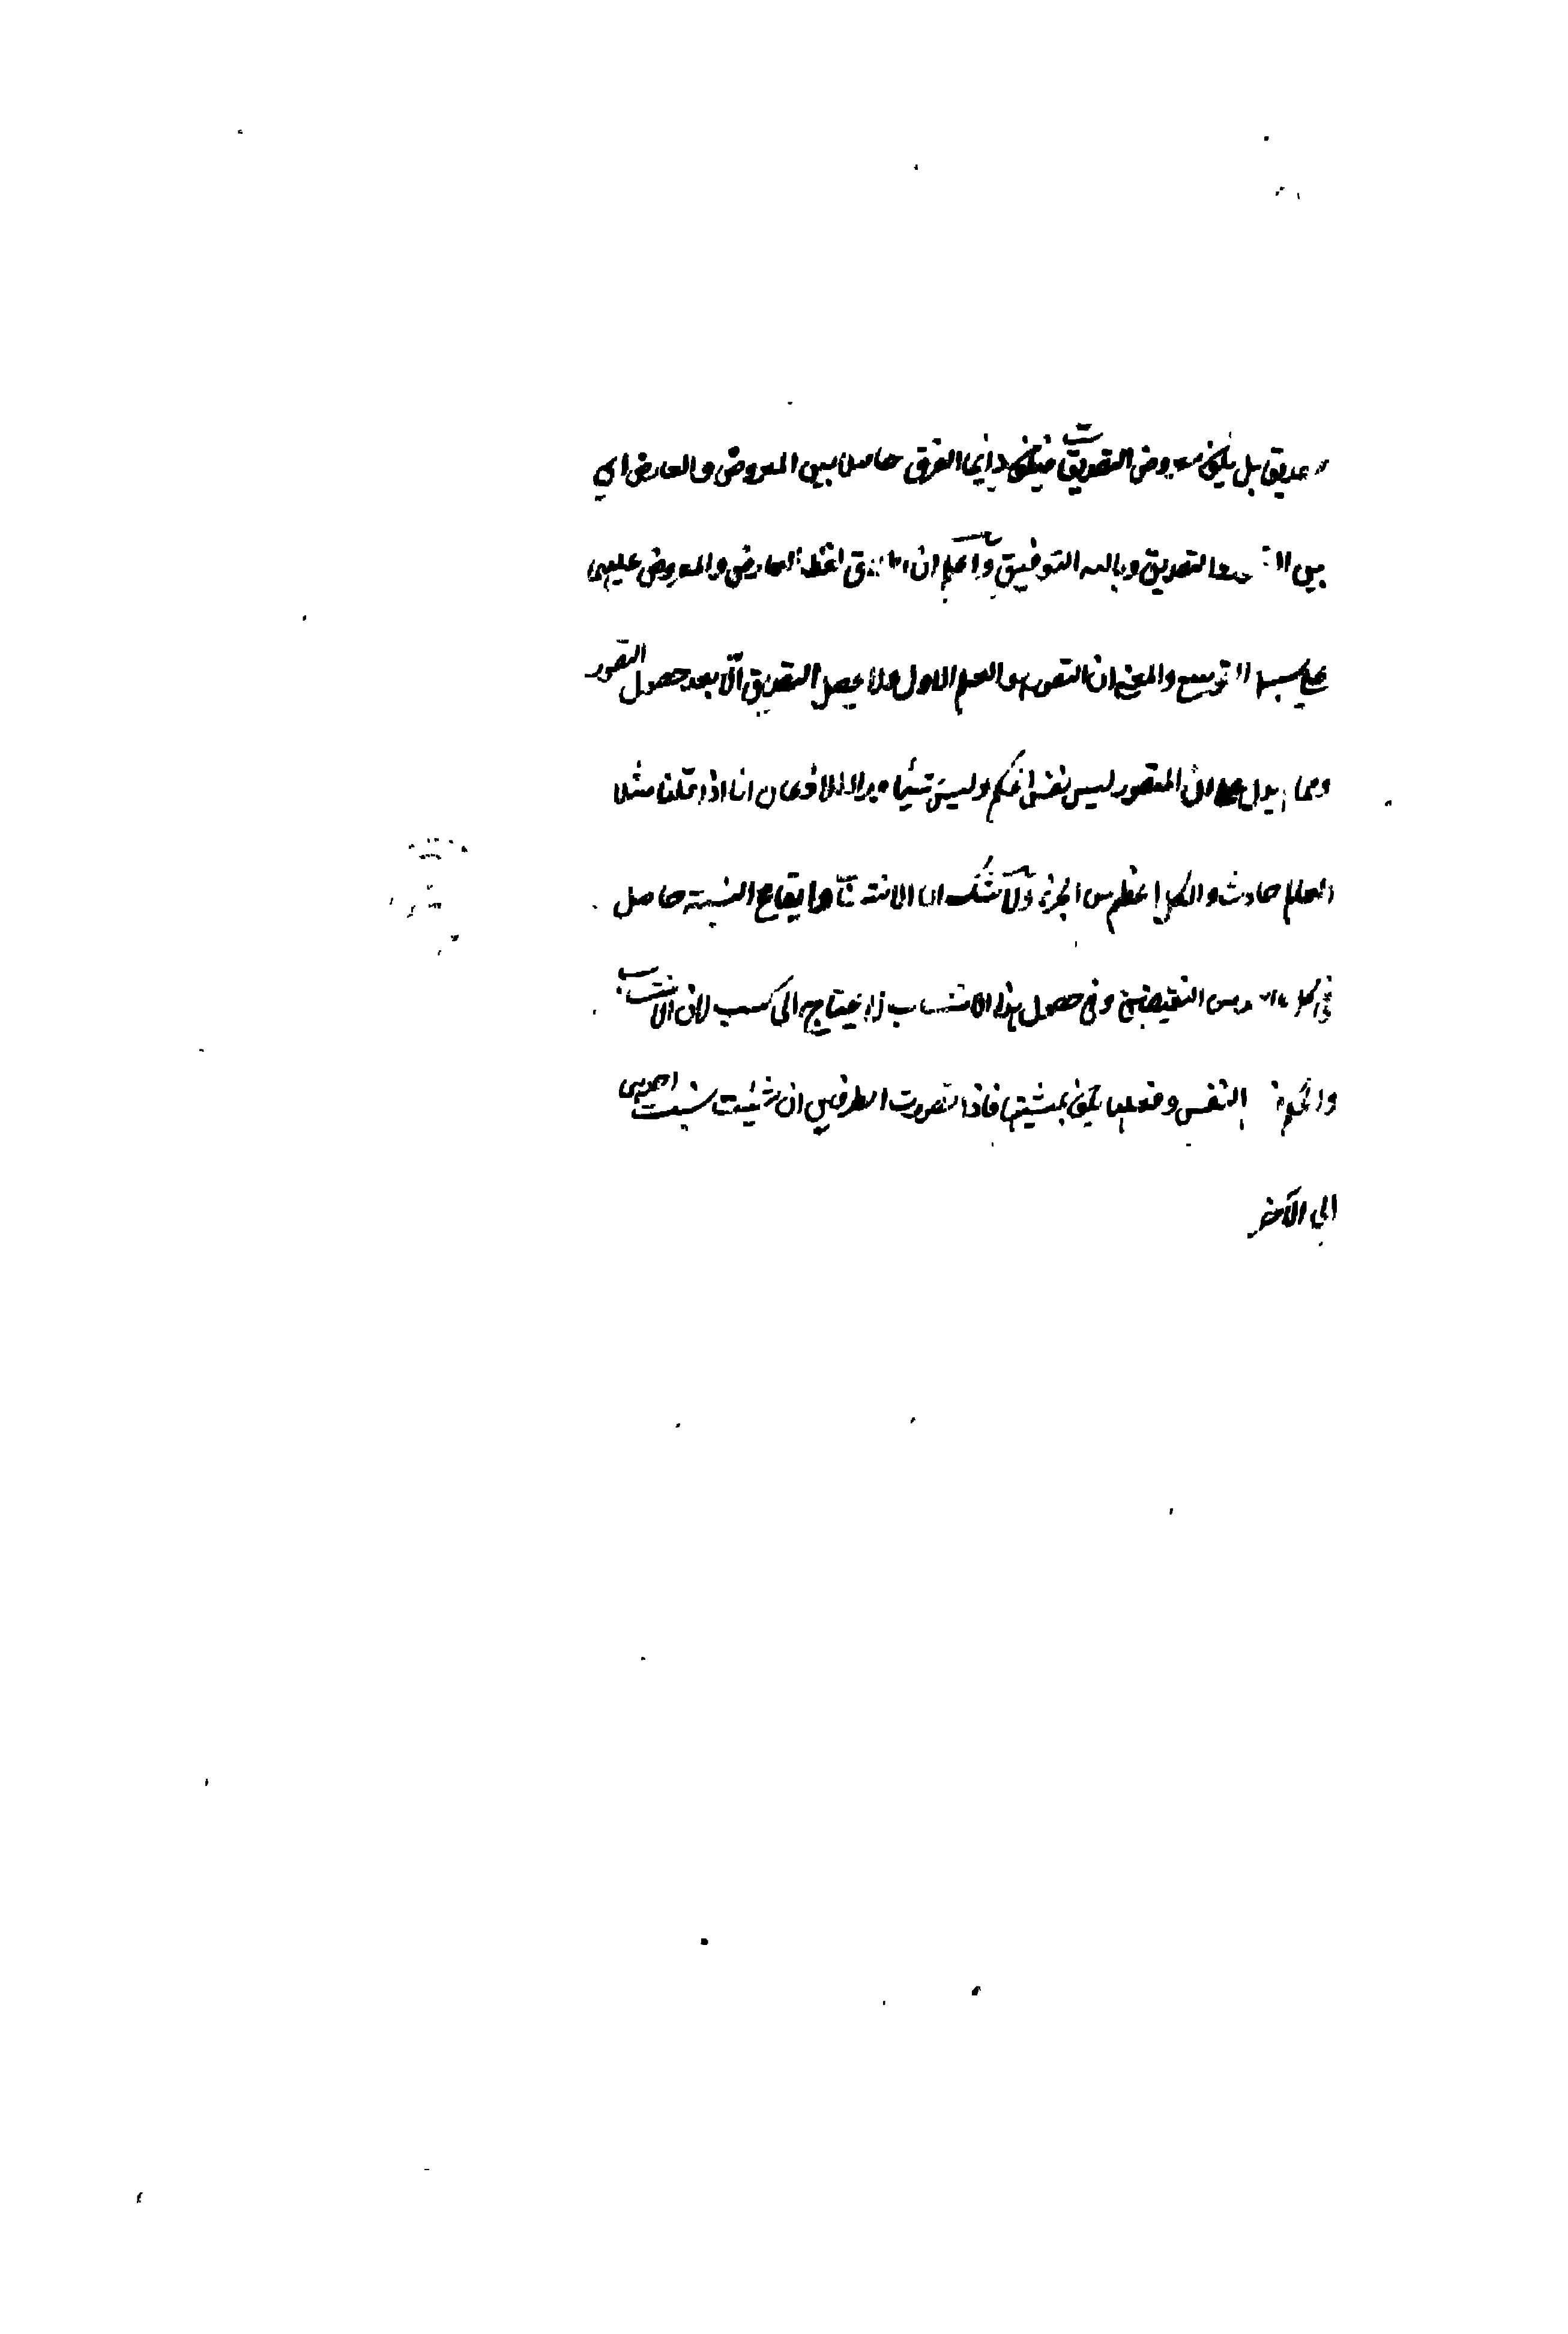 بل يكون معروض التصديق فيكون دايما الفرق حاصلا بين المعروض والعارض اي
بين التصور والتصديق وبالله التوفيق واعلم ان اطلاق لفظ العارض والمعروض عليهما
علي سبيل التوسع والمعني ان التصور هو العلم الاول ولا يحصل التصديق الّا بعد حصول التصور
ومما يدل علي ان المتصور ليس نفس الحكم وليس شيأ ويراد للاذعان انا اذا قلنا مثلا
العالم حادث والكل اعظم من الجزء ولا شك ان الانتساب وايقاع النسبة حاصل
في كل واحد من النقيضين وفي حصول هذا الانتساب لا يحتاج الي كسب لان الانتساب
والحكم النفس وفعلها يكون بمشيتها فاذا تصورت الطرفين ان شئت نسبت احدهما
الي الآخر